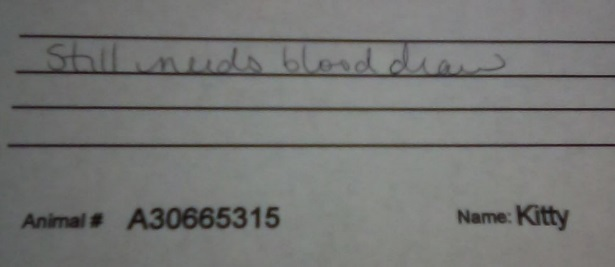 Still needs blood draw
Animal # A30665315 Name: Kitty